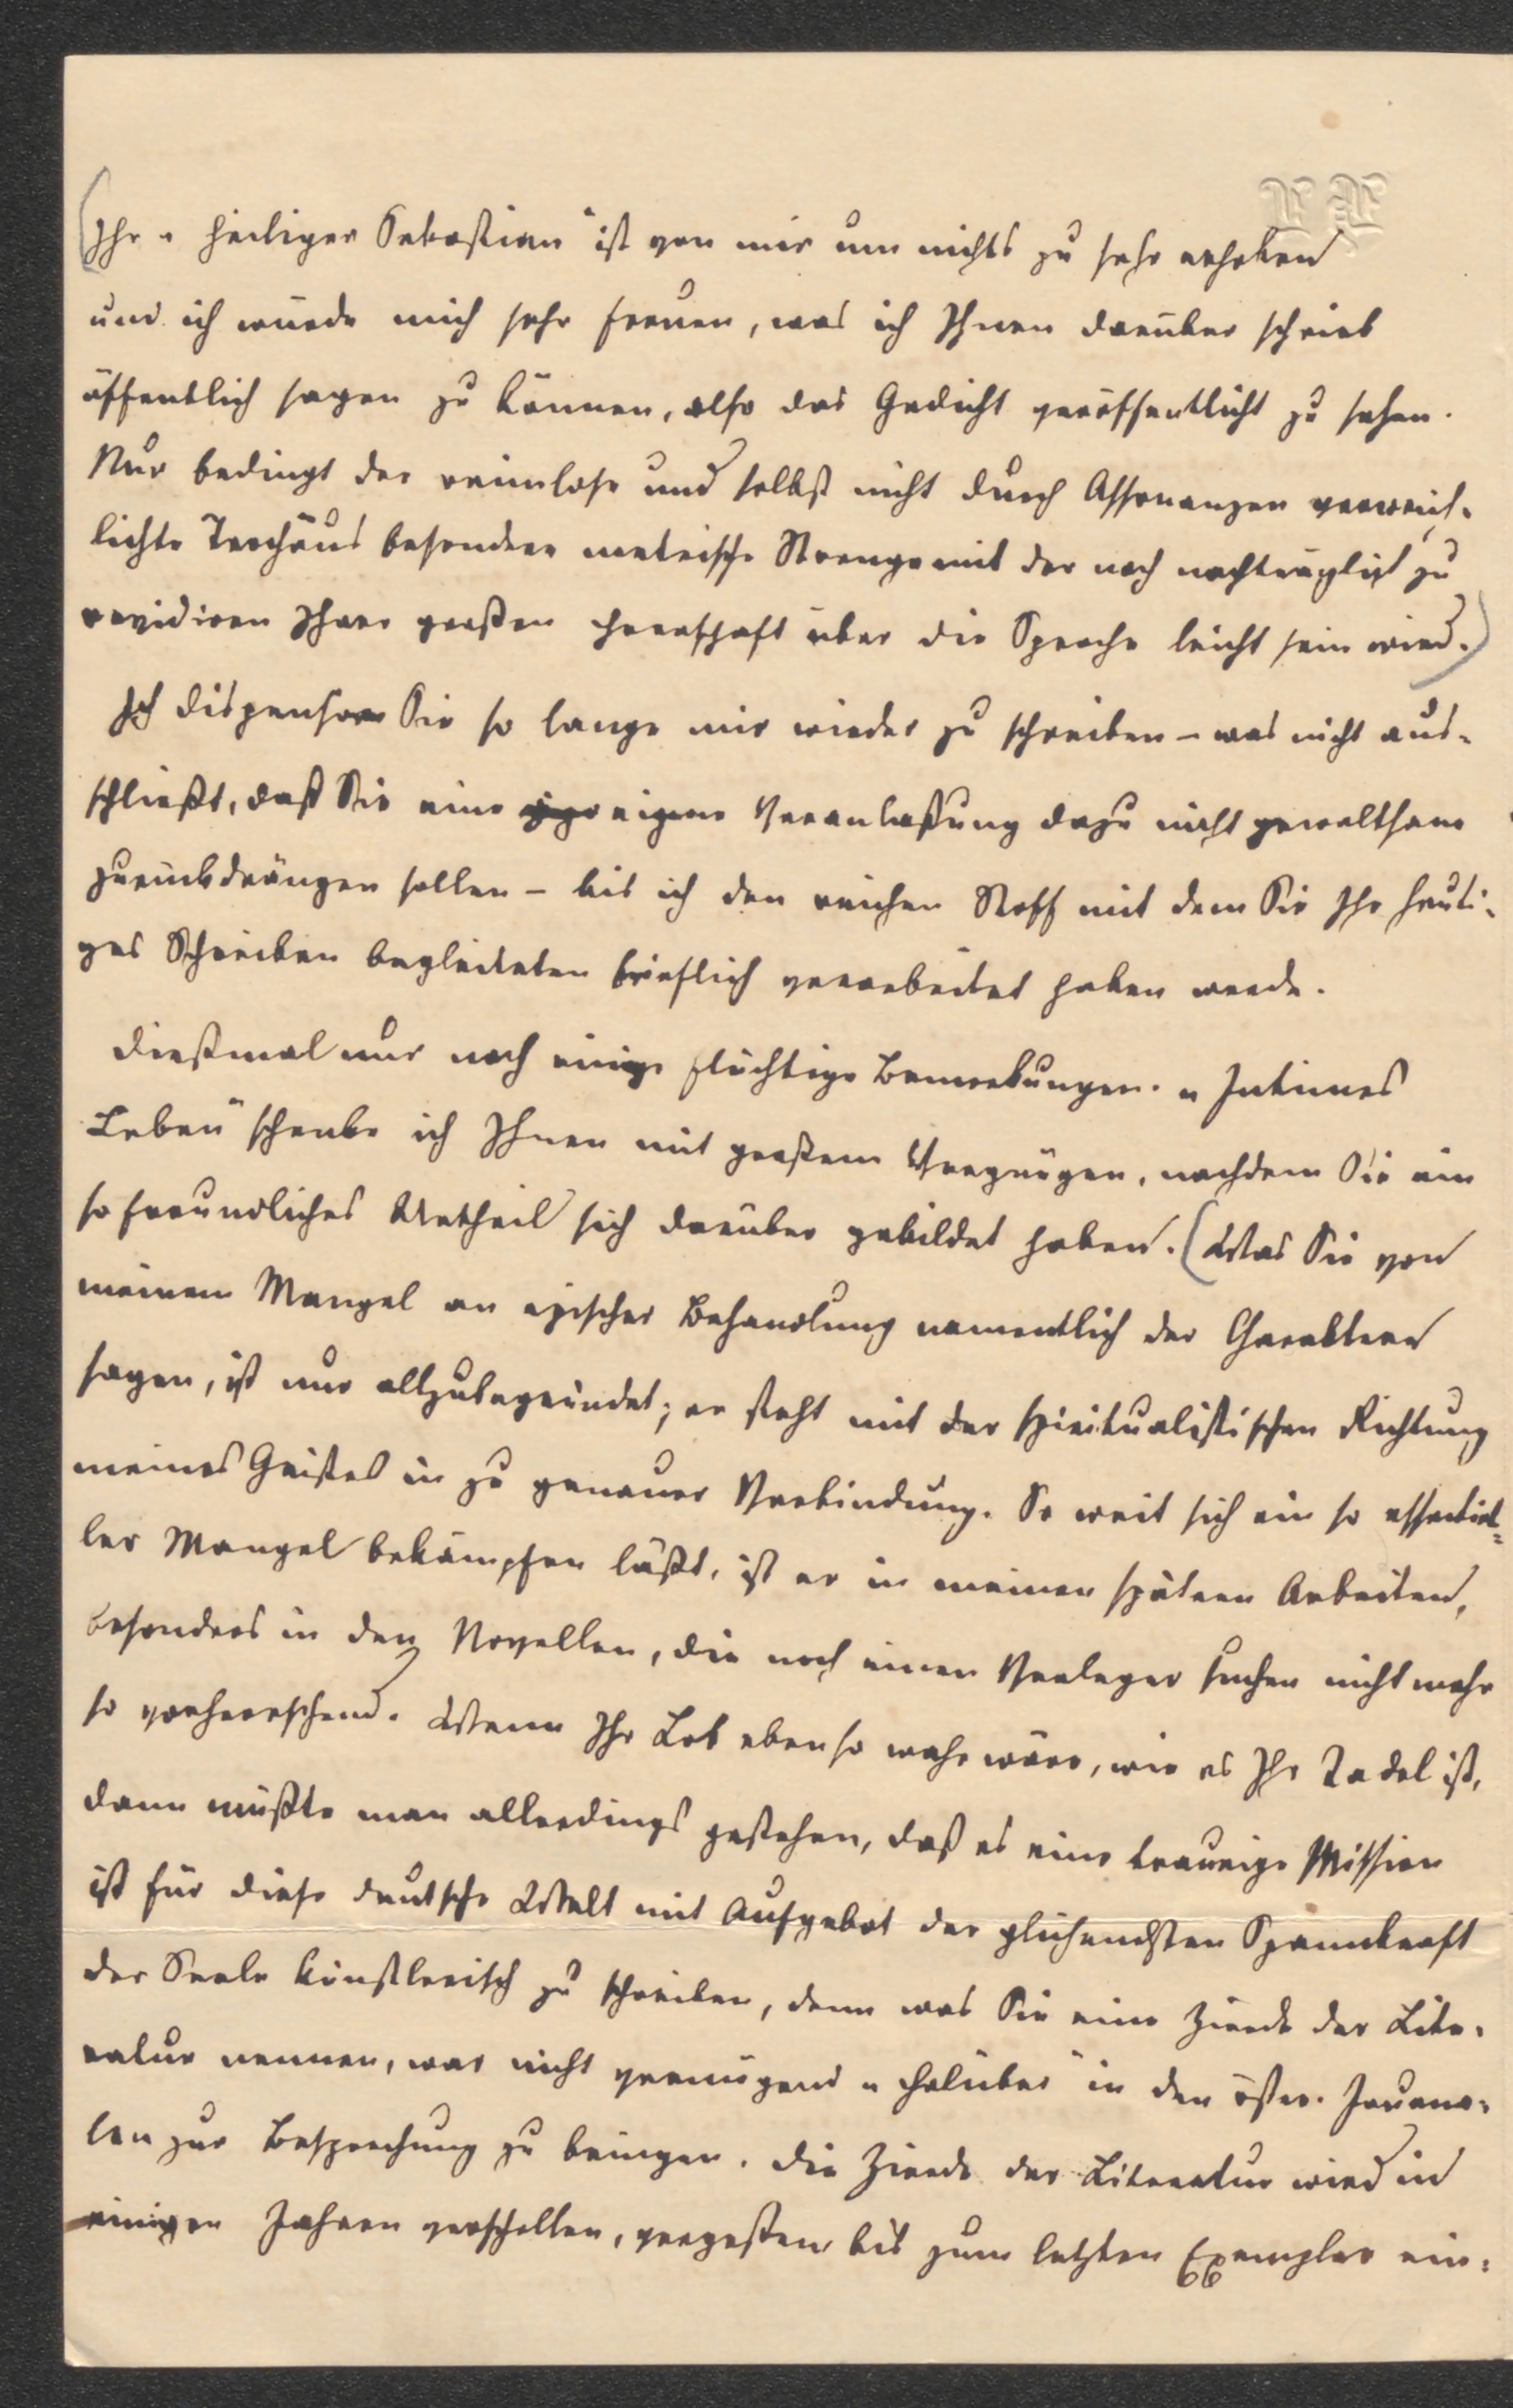 (Ihr „heiliger Sebastian“ ist von mir um nichts zu sehr erhoben
und ich würde mich sehr freuen, was ich Ihnen darüber schrieb
öffentlich sagen zu können, also das Gedicht veröffentlicht zu sehen.
Nur bedingt der reimlose und selbst nicht durch Assonanzen verweich-
lichte Trochäus besondere metrische Strenge mit der noch nachträglich zu
revidiren Ihrer großen Herrschaft über die Sprache leicht sein wird.)
Ich dispensire Sie so lange mir wieder zu schreiben – was nicht aus-
schließt, daß Sie eine eigene Veranlaßung dazu nicht gewaltsam
zurückdrängen sollen – bis ich den reichen Stoff mit dem Sie Ihr heuti-
ges Schreiben begleiteten brieflich verarbeitet haben werde.
Dießmal nur noch einige flüchtige Bemerkungen. „Intimes
Leben“ schenke ich Ihnen mit großem Vergnügen, nachdem Sie ein
so freundliches Urtheil sich darüber gebildet haben. (Was Sie von
meinem Mangel an epischer Behandlung namentlich der Charaktere
sagen, ist nur allzubegründet; er steht mit der spiritualistischen Richtung
meines Geistes in zu genauer Verbindung. So weit sich ein so essentiel-
ler Mangel bekämpfen läßt, ist er in meinen spätern Arbeiten,
besonders in den Novellen, die noch einen Verleger suchen nicht mehr
so vorherrschend. Wenn Ihr Lob ebenso wahr wäre, wie es Ihr Tadel ist,
dann müßte man allerdings gestehen, daß es eine traurige Mission
ist für diese deutsche Welt mit Aufgebot der glühendsten Spannkraft
der Seele künstlerisch zu schreiben, denn was Sie eine Zierde der Lite-
ratur nennen, war nicht vermögend in den öster. Journa-
len zur Besprechung zu bringen. Die Zierde der Literatur wird in
einigen Jahren verschollen, vergeßen bis zum letzten Exemplar ein-